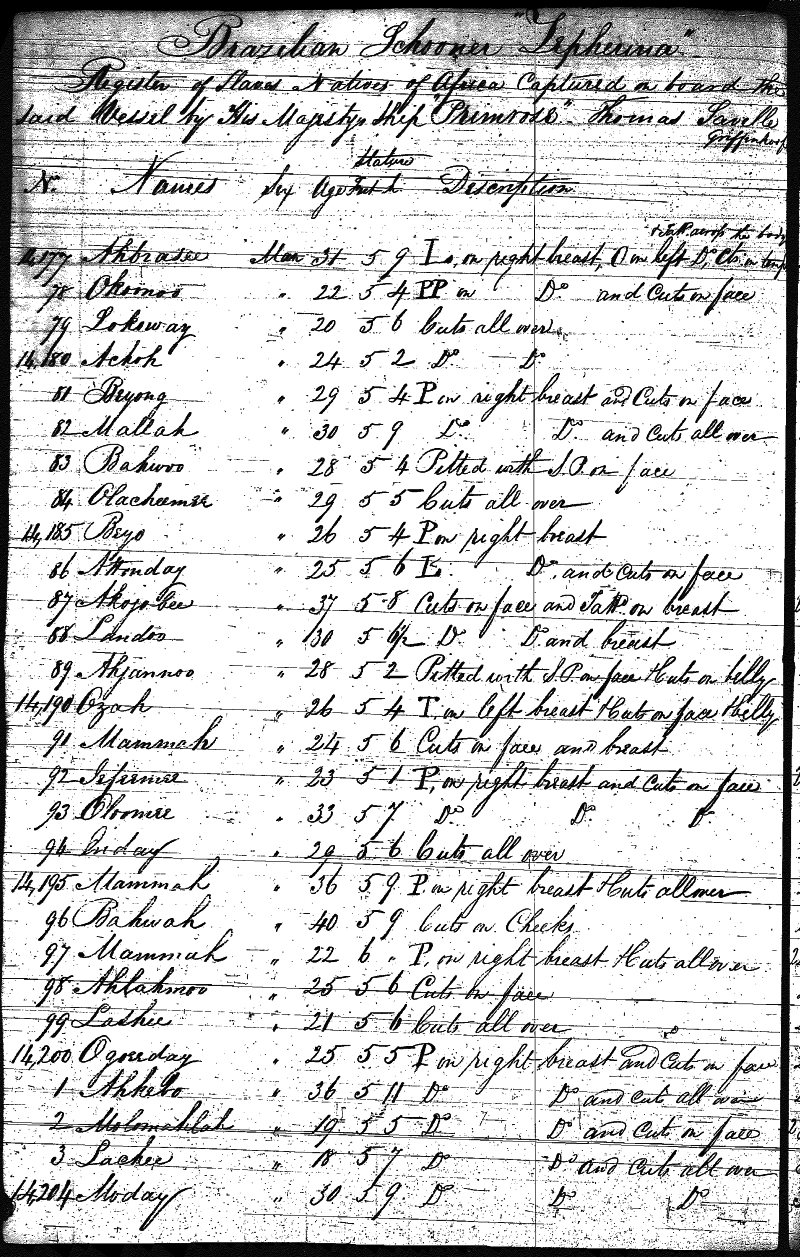 Brazilian Schooner "Zepherina"
Register of Slaves Natives of Africa Captured on board the
said Vessel by His Majestys Ship "Primrose". Thomas Saville
Griffinhoof
Stature
N. Names Sex Age Feet In Description
across the body
14,177 Ahbrasee Man 31 5 9 on right breast, O on left Do, Cts. on
78 Okoonoo " 22 5 4 PP on Do and Cuts on face
79 Lokoway " 20 5 6 Cuts all over
14,180 Achoh " 24 5 2 Do Do
81 Beyong " 29 5 4 P on right breast and Cuts on face
82 Mallah " 30 5 9 Do Do and Cuts all over
83 Bahwoo " 28 5 4 Pitted with S.P. on face
84 Olacheemee " 29 5 5 Cuts all over
14,185 Beyo " 26 5 4 P on right breast
86 Attonday " 25 5 6 Do. and Cuts on face
87 Akojobee " 37 5 8 Cuts on face and Tatd. on breast
88 Landoo " 30 5 6½ Do Do and breast
89 Ahjannoo " 28 5 2 Pitted with S.P. on face & Cuts on belly
14,190 Ozah " 26 5 4 T, on left breast & Cuts on face & belly
91 Mammah " 24 5 6 Cuts on face and breast
92 Jefeemee " 23 5 1 P, on right breast and Cuts on face
93 Oloomee " 33 5 7 Do Do Do
94 Inday " 29 5 6 Cuts all over
14,195 Mammah " 36 5 9 P on right breast & Cuts all over
96 Bahwah " 40 5 9 Cuts on Cheeks
97 Mammah " 22 6 " P, on right breast & Cuts all over
98 Ahlahmoo " 25 5 6 Cuts on face
99 Lashee " 21 5 6 Cuts all over
14,200 Ogouday " 25 5 5 P on right breast and Cuts on face
1 Ahkebo " 36 5 11 Do Do and Cuts all over
2 Molomahlah " 19 5 5 Do Do and Cuts on face
3 Lachee " 18 5 7 Do Do and Cuts all over
14,204 Moday " 30 5 9 Do Do Do